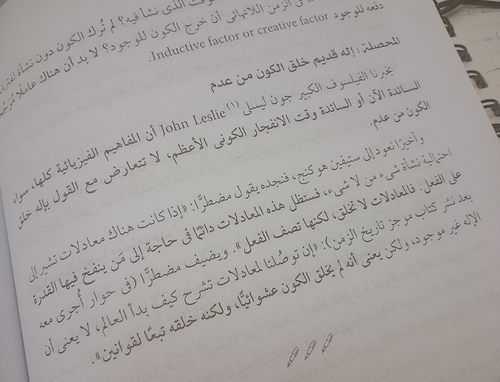 وقت الذى نشأ فيه؟ لم تُرك الكون دون نشأة
فى الزمن اللانهائى أن خرج الكون للوجود؟ لا بد أن هناك عاملاً
دفعه للوجود Inductive factor or creative factor.
المحصلة: إله قديم خلق الكون من عدم
يخبرنا الفيلسوف الكبير جون ليسلى John Leslie (١) أن المفاهيم الفيزيائية كلها، سواء
السائدة الآن أو السائدة وقت الانفجار الكونى الأعظم، لا تتعارض مع القول بإله خلق
الكون من عدم.
وأخيرًا نعود إلى ستيفين هوكنج، فنجده يقول مضطرًا: «إذا كانت هناك معادلات تشير إلى
احتمالية نشأة شىء من لا شىء، فستظل هذه المعادلات دائمًا فى حاجة إلى مَن ينفخ فيها القدرة
على الفعل. فالمعادلات لا تخلق، لكنها تصف الفعل». ويضيف مضطرًا (فى حوار أُجرى معه
بعد نشر كتاب موجز تاريخ الزمن): «إن توصُّلنا لمعادلات تشرح كيف بدأ العالم، لا يعنى أن
الإله غير موجود، ولكن يعنى أنه لم يخلق الكون عشوائيًّا، ولكنه خلقه تبعًا لقوانين».